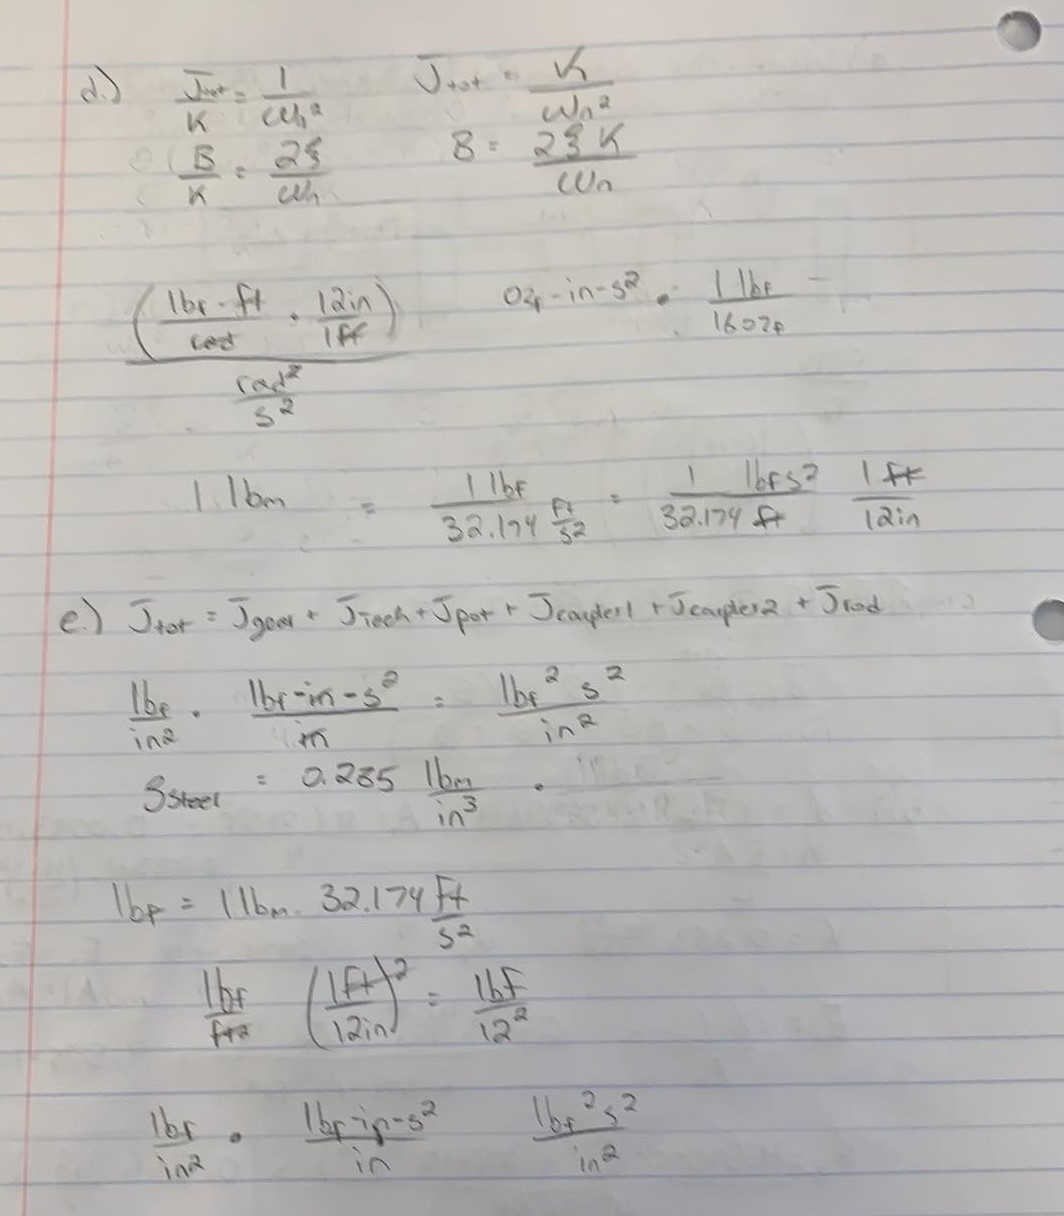 d.) Jtot/K = 1/ωn² Jtot = K/ωn²
B/K = 2ξ/ωn B = 2ξK/ωn
(lbf-ft/rad · 12in/1ft) / (rad²/s²) ozf-in-s² · 1 lbf/16ozf
1 lbm = 1 lbf/32.174 ft/s² = 1/32.174 lbfs²/ft 1 ft/12in
e.) Jtot = Jgear + Jtech + Jpot + Jcoupler1 + Jcoupler2 + Jrod
lbf/in² · lbf-in-s²/in = lbf² s²/in²
Ssteel = 0.285 lbm/in³ ·
lbf = 1 lbm · 32.174 ft/s²
lbf/ft² (1ft/12in)² = lbf/12²
lbf/in² · lbf-in-s²/in lbf² s²/in²